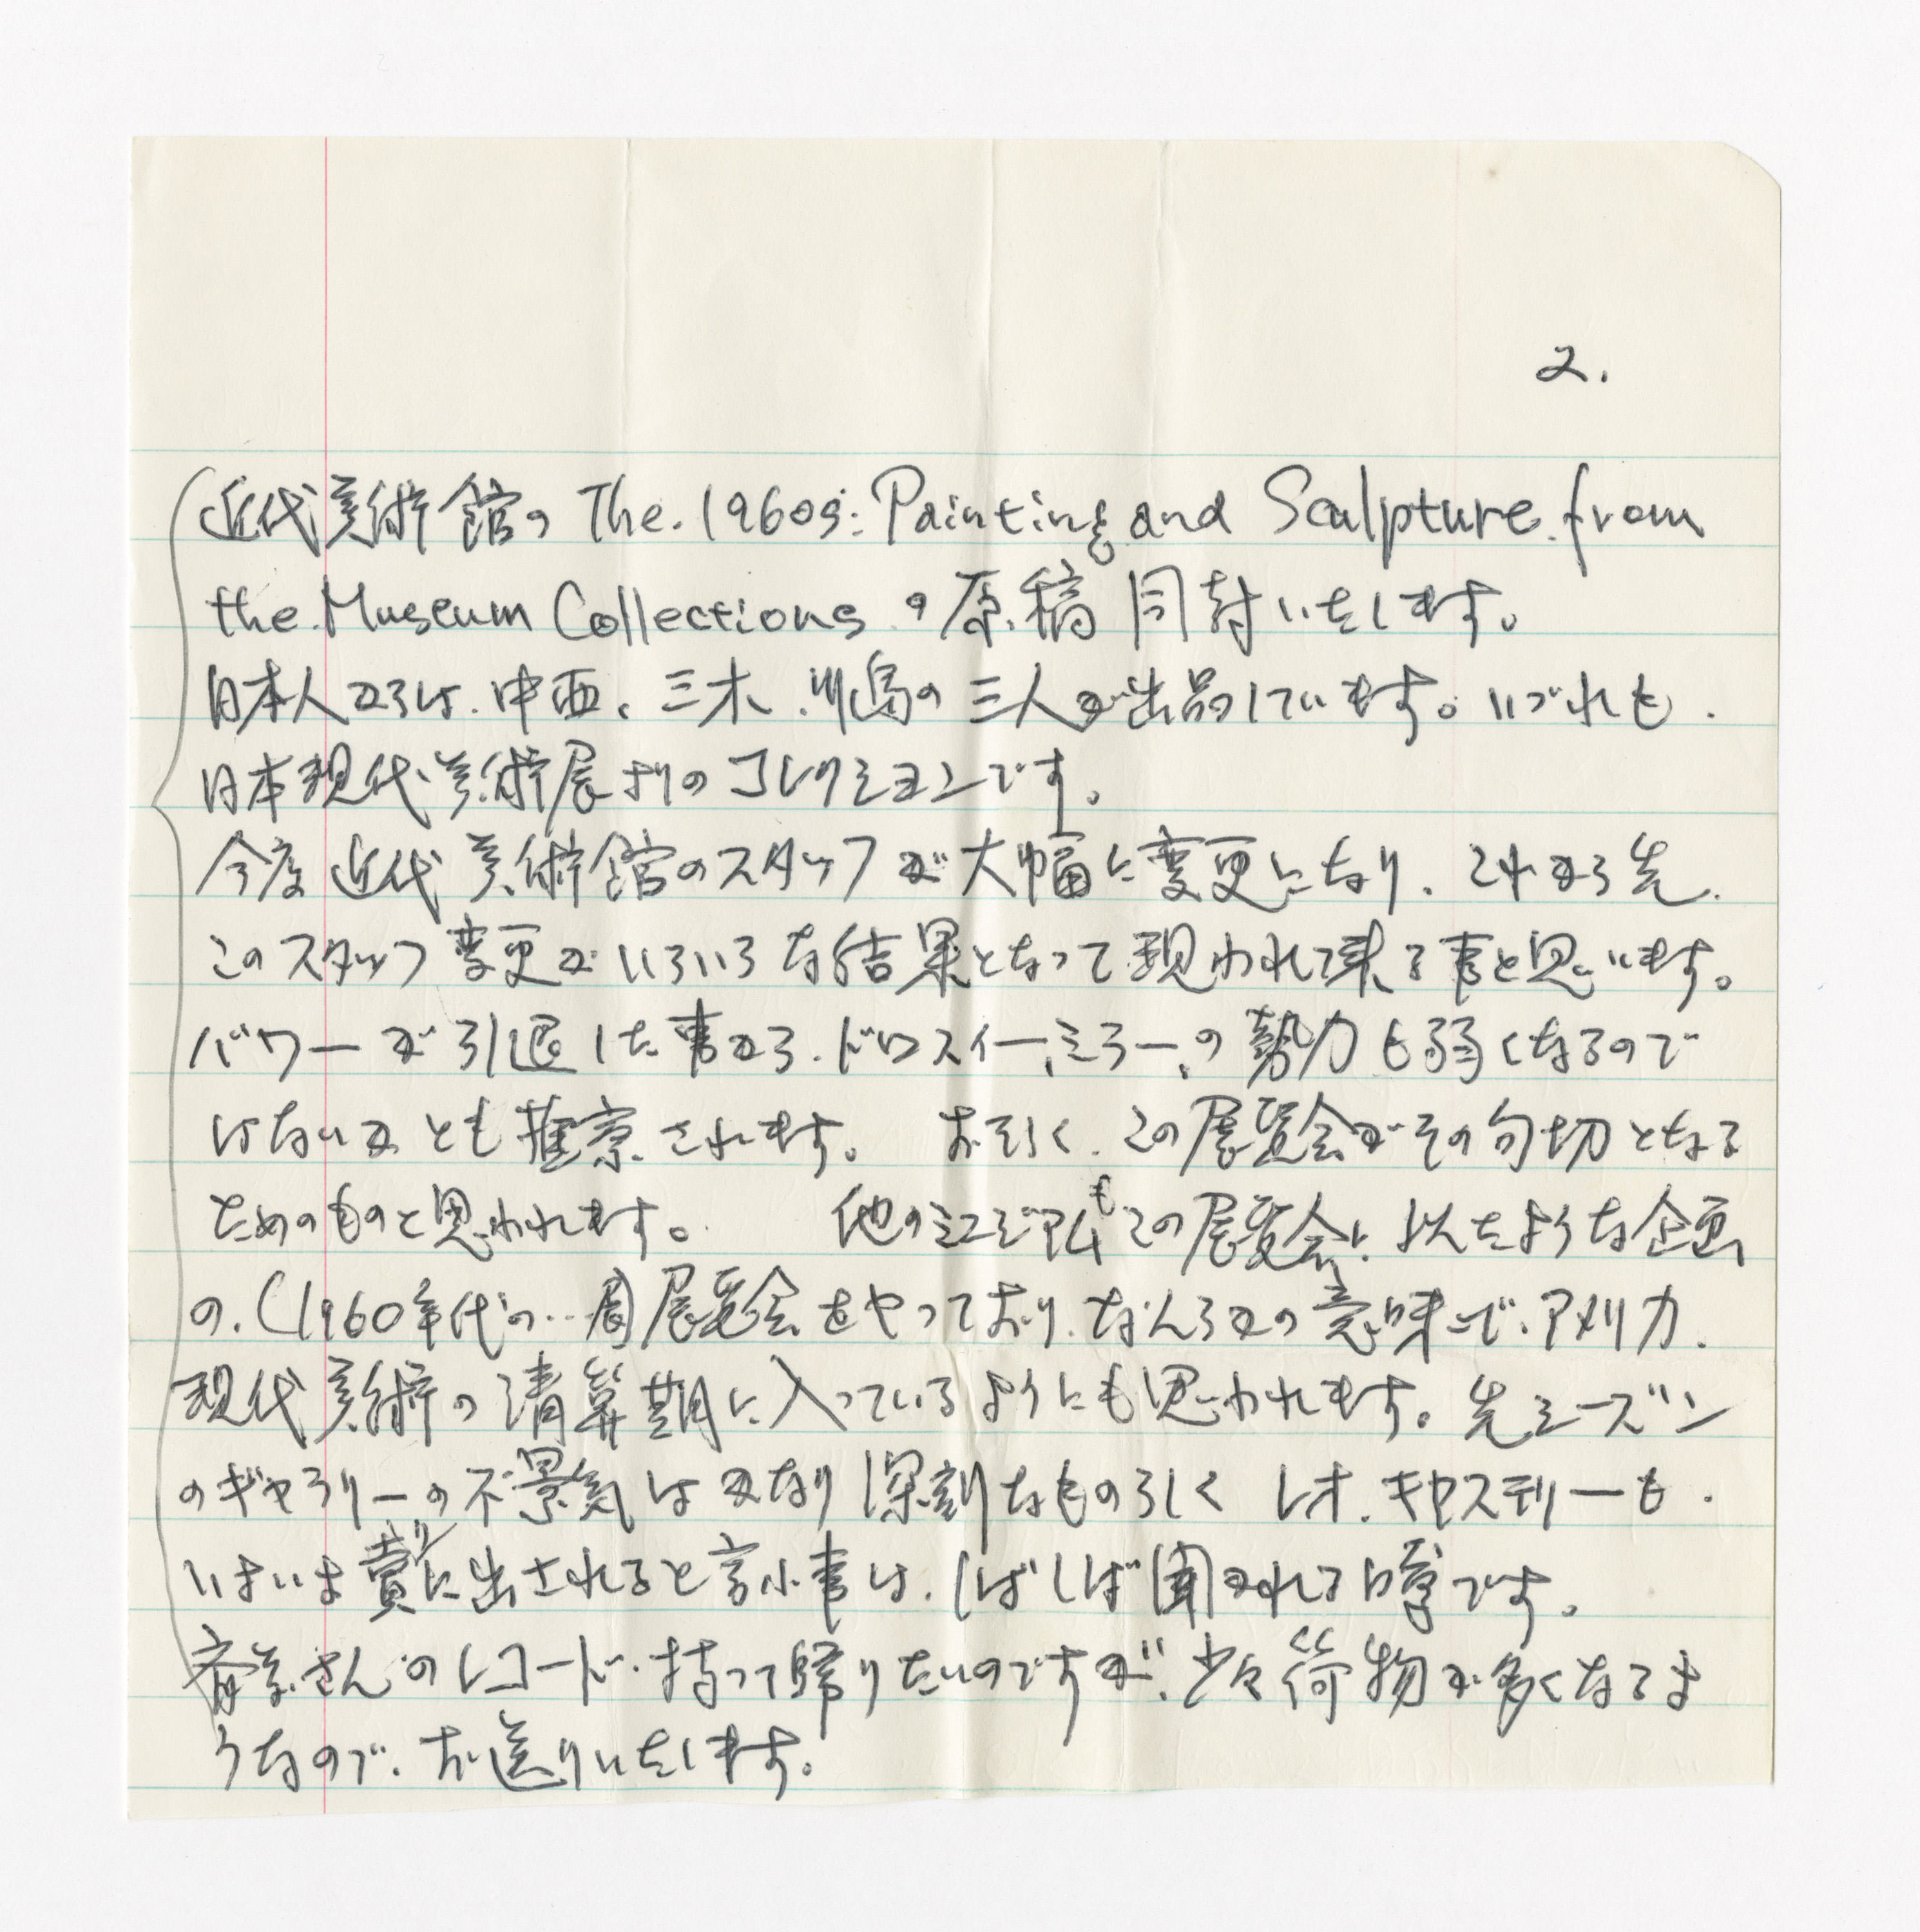 2.
近代美術館の The 1960s: Painting and Sculpture from
the Museum Collections の原稿同封いたします。
日本人からは、中西、三木、川島の三人が出品しています。いづれも
日本現代美術展よりのコレクションです。
今度近代美術館のスタッフが大幅に変更になり、これから先
このスタッフ変更がいろいろな結果となって現われて来る事と思います。
バワーが引退した事から、ドロスィー、ミラー、の勢力も弱くなるので
はないかとも推察されます。 おそらく、この展覧会がその句切となる
ためのものと思われます。 他のミュジアムもこの展覧会に似たような企画
の、(1960年代の… 展覧会をやっており、なんらかの意味で、アメリカ
現代美術の清算期に入っているようにも思われます。先シーズン
のギャラリーの不景気はかなり深刻なものらしく レオ、キャステリーも
いまいま賣りに出されると言ふ事は、しばしば聞かれる噂です。
斉藤さんのレコード、持って帰りたいのですが、少々荷物が多くなるよ
うなので、お送りいたします。